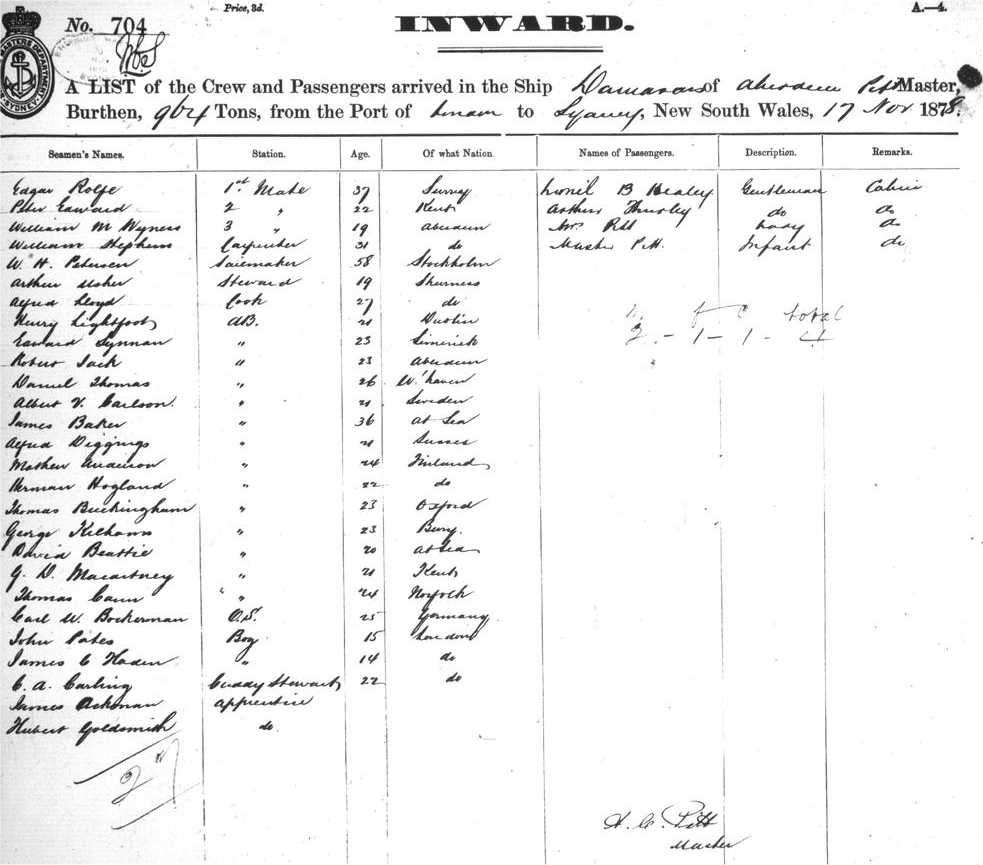 Price, 3d.
A.—4.
No. 704
INWARD.
A LIST of the Crew and Passengers arrived in the Ship Damarus of Aberdeen Pitt Master,
Burthen, 964 Tons, from the Port of London to Sydney, New South Wales, 17 Nov 1878.
Seamen's Names. Station. Age. Of what Nation. Names of Passengers. Description. Remarks.
Edgar Rolfe 1st Mate 37 Surrey Lionil B Healey Gentleman Cabin
Peter Edward 2 " 22 Kent Arthur Thursby do do
William M Wyness 3 " 19 Aberdeen Mrs Pitt Lady do
William Stephens Carpenter 31 do Master Pitt Infant do
W. H. Petersen Sailmaker 58 Stockholm
Arthur Usher Steward 19 Sheerness
Alfred Lloyd Cook 27 do
Henry Lightfoot AB. 21 Dublin
total
Edward Lynnan " 23 Limerick
2 - 1 - 1 - 4
Robert Jack " 23 Aberdeen
Daniel Thomas " 26 W'haven
Albert V. Carlson " 21 Sweden
James Baker " 36 at Sea
Alfred Diggings " 21 Sussex
Mathew Anderson " 24 Finland
Herman Hogland " 22 do
Thomas Buckingham " 23 Oxford
George Kilhams " 23 Bury
David Beattie " 20 at Sea
G. D. Macartney " 21 Kent
Thomas Cann " 24 Norfolk
Carl W. Bockerman O.S. 25 Germany
John Pates Boy 15 London
James C Haden " 14 do
C. A. Carling Cuddy Steward 22 do
James Ackman apprentice
Hubert Goldsmith do.
27
H. C. Pitt
Master